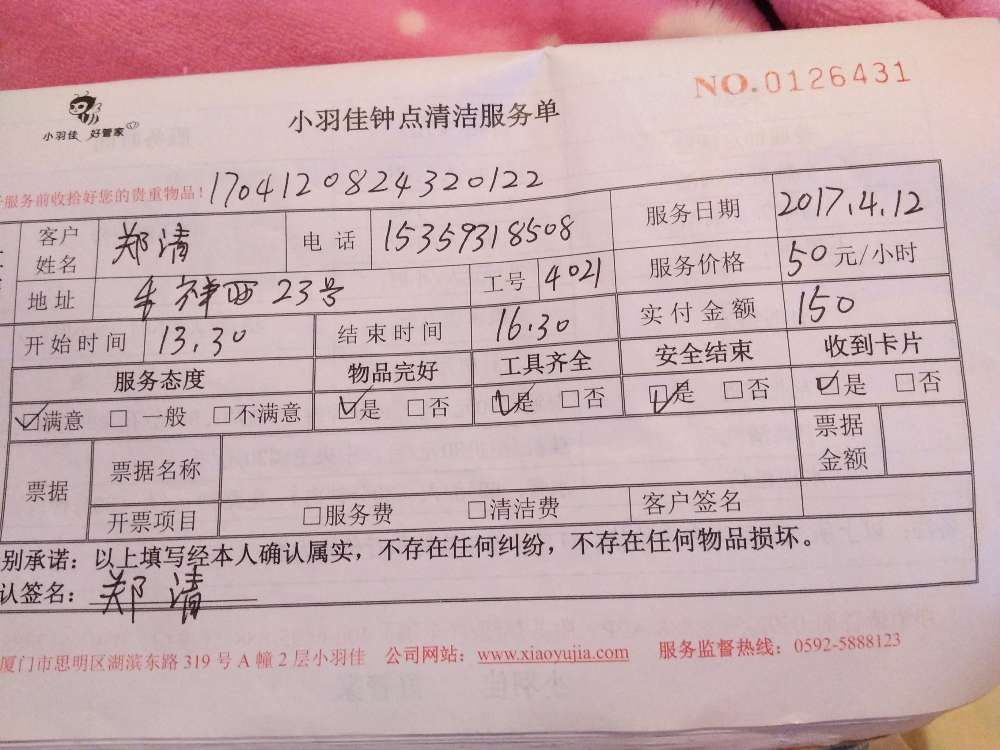 NO.0126431
小羽佳 好管家
小羽佳钟点清洁服务单
服务前收拾好您的贵重物品! 1704120824320122
客户姓名 郑清 电话 15359318508 服务日期 2017.4.12
地址 禾祥西23号 工号 4021 服务价格 50元/小时
开始时间 13.30 结束时间 16.30 实付金额 150
服务态度 物品完好 工具齐全 安全结束 收到卡片
☑满意 □一般 □不满意 ☑是 □否 ☑是 □否 ☑是 □否 ☑是 □否
票据 票据名称 票据金额
开票项目 □服务费 □清洁费 客户签名
别承诺：以上填写经本人确认属实，不存在任何纠纷，不存在任何物品损坏。
认签名：郑清
厦门市思明区湖滨东路319号A幢2层小羽佳 公司网站：www.xiaoyujia.com 服务监督热线：0592-5888123